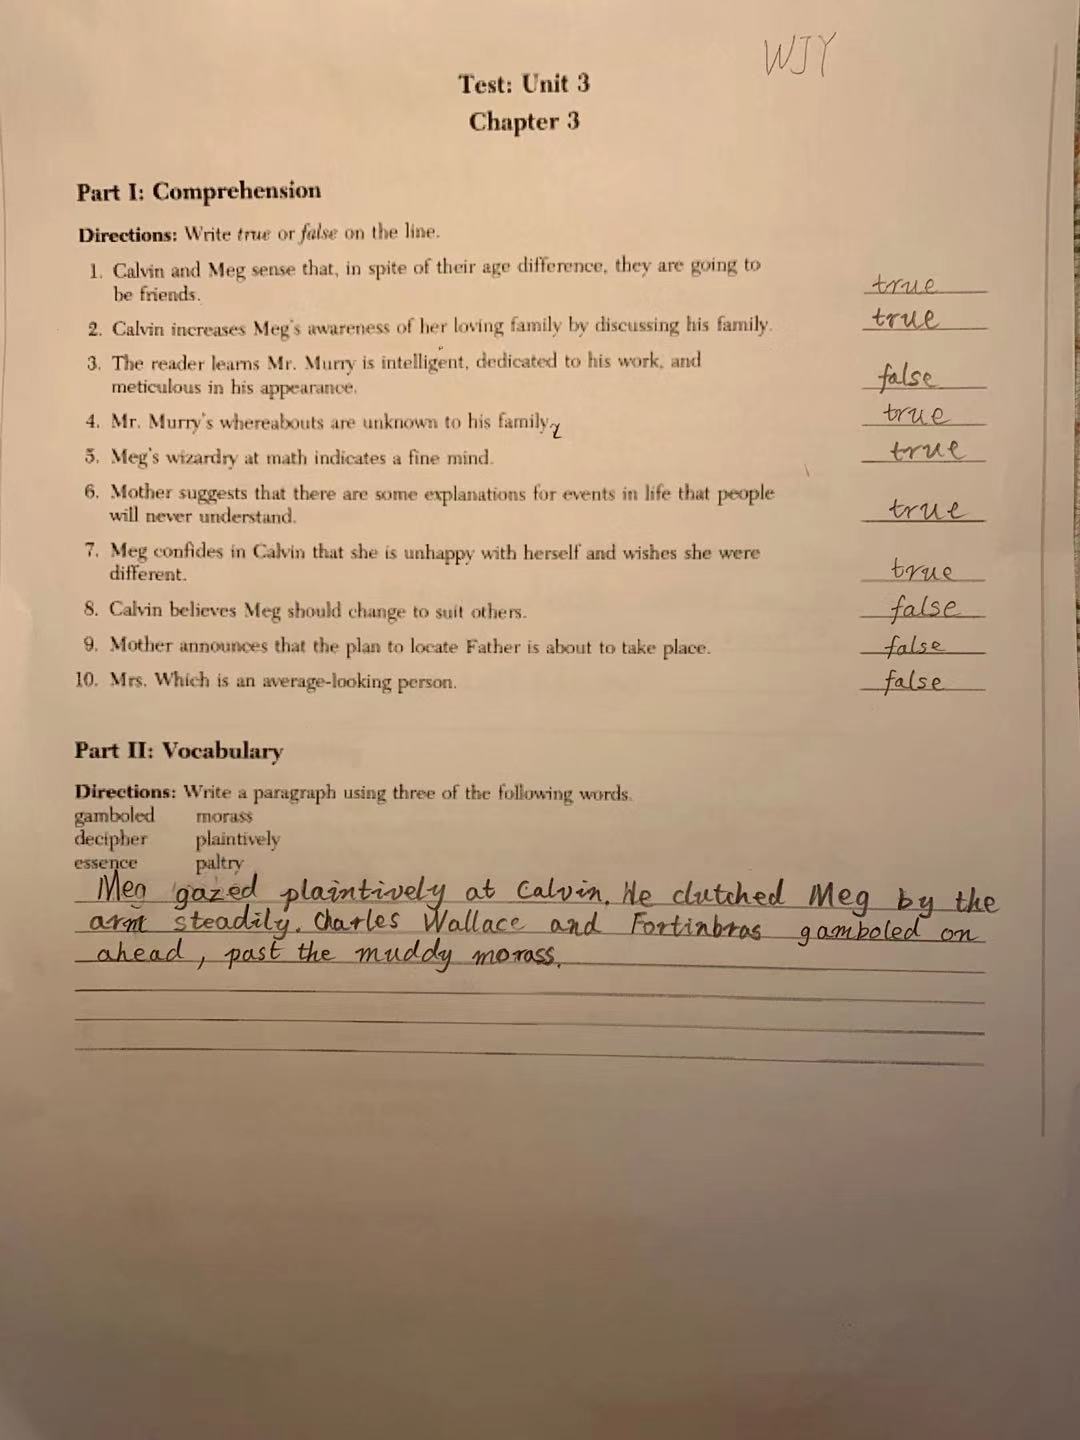 WJY
Test: Unit 3
Chapter 3
Part I: Comprehension
Directions: Write true or false on the line.
1. Calvin and Meg sense that, in spite of their age difference, they are going to
be friends.
true
2. Calvin increases Meg's awareness of her loving family by discussing his family.
true
3. The reader learns Mr. Murry is intelligent, dedicated to his work, and
meticulous in his appearance.
false
4. Mr. Murry's whereabouts are unknown to his family.
true
5. Meg's wizardry at math indicates a fine mind.
true
6. Mother suggests that there are some explanations for events in life that people
will never understand.
true
7. Meg confides in Calvin that she is unhappy with herself and wishes she were
different.
true
8. Calvin believes Meg should change to suit others.
false
9. Mother announces that the plan to locate Father is about to take place.
false
10. Mrs. Which is an average-looking person.
false
Part II: Vocabulary
Directions: Write a paragraph using three of the following words.
gamboled morass
decipher plaintively
essence paltry
Meg gazed plaintively at Calvin. He clutched Meg by the
arm steadily. Charles Wallace and Fortinbras gamboled on
ahead, past the muddy morass.